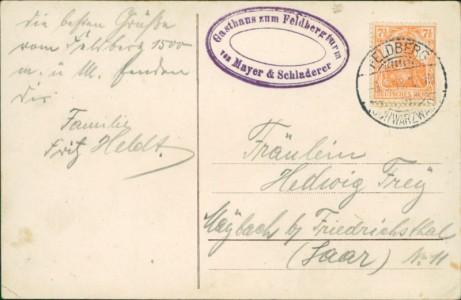 die besten Grüße
vom Feldberg 1500
m. ü M. senden
die
Familie
Fritz Heldt.
Gasthaus zum Feldbergturm
von Mayer & Schladerer
7½ 7½
DEUTSCHES REICH
FELDBERG
(SCHWARZWALD)
Fräulein
Hedwig Frey
Maybach by Friedrichsthal
(Saar) No 11